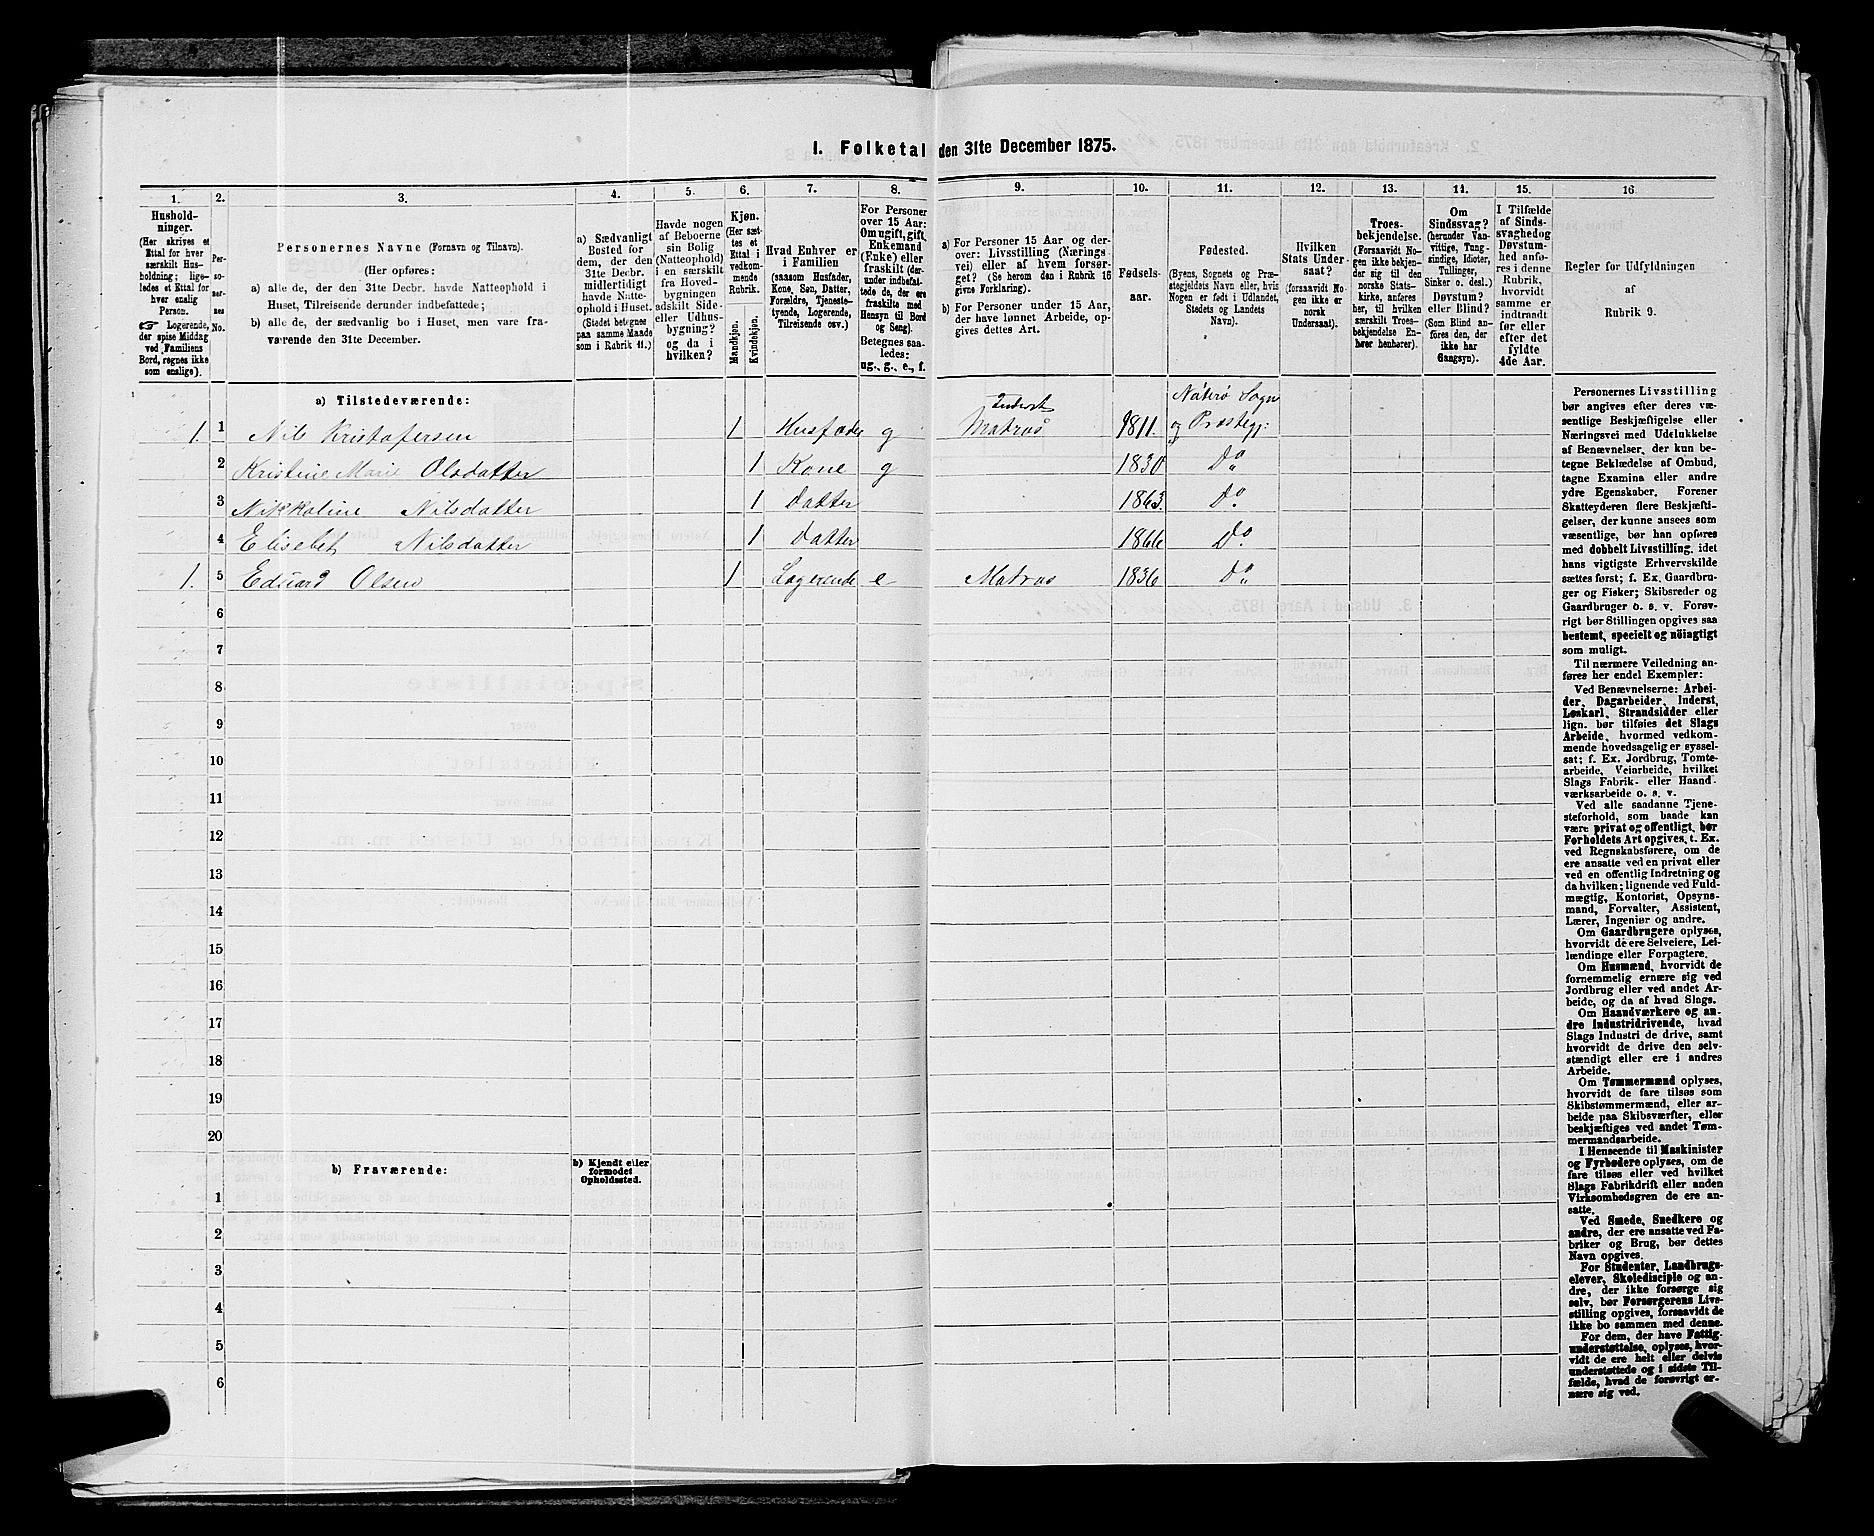 I. Folketal den 31te December 1875.
1.
2.
3.
4.
5.
6.
7.
8.
9.
10.
11.
12.
13.
14.
15.
16
Hushold-
ninger.
(Her skrives et
Ettal for hver
særskilt Hus-
holdning; lige-
ledes et Ettal for
hver enslig
Person.
☞ Logerende,
der spise Middag
ved Familiens
Bord, regnes ikke
som enslige).
Per-
so-
ner-
nes
No.
Personernes Navne (Fornavn og Tilnavn).
(Her opføres:
a) alle de, der den 31te Decbr. havde Natteophold i
Huset, Tilreisende derunder indbefattede;
b) alle de, der sædvanlig bo i Huset, men vare fra-
værende den 31te December.
a) Sædvanligt
Bosted for
dem, der den
31te Decbr.
midlertidigt
havde Natte-
ophold i Huset.
(Stedet betegnes
paa samme Maade
som i Rubrik 11.)
Havde nogen
af Beboerne
sin Bolig
(Natteophold)
i en særskilt
fra Hoved-
bygningen
adskilt Side-
eller Udhus-
bygning?
og da i
hvilken?
Kjøn.
(Her sæt-
tes et
Ettal i
vedkom-
mende
Rubrik.
Mandkjøn.
Kvindekjøn.
Hvad Enhver er
i Familien
(saasom Husfader,
Kone, Søn, Datter,
Forældre, Tjeneste-
tyende, Logerende,
Tilreisende osv.)
For Personer
over 15 Aar:
Om ugift, gift,
Enkemand
(Enke) eller
fraskilt (der-
under indbefat-
tede de, der ere
fraskilte med
Hensyn til Bord
og Seng).
Betegnes saa-
ledes:
ug., g., e., f.
a) For Personer 15 Aar og der-
over: Livsstilling (Nærings-
vei) eller af hvem forsør-
get? (Se herom den i Rubrik 16
givne Forklaring).
b) For Personer under 15 Aar,
der have lønnet Arbeide, op-
gives dettes Art.
Fødsels-
aar.
Fødested.
(Byens, Sognets og Præ-
stegjeldets Navn, eller, hvis
Nogen er født i Udlandet,
Stedets og Landets
Navn).
Hvilken
Stats Under-
saat?
(forsaavidt No-
gen ikke er
norsk
Undersaat).
Troes-
bekjendelse.
(Forsaavidt No-
gen ikke bekjen-
der sig til den
norske Stats-
kirke, anføres
her, til hvilken
særskilt Troes-
bekjendelse En-
hver henhører).
Om
Sindssvag?
(herunder Van-
vittige, Tung-
sindige, Idioter,
Tullinger,
Sinker o. desl.)
Døvstum?
eller Blind?
(Som Blind an-
føres den, der
ikke har
Gangsyn).
I Tilfælde
af Sinds-
svaghed og
Døvstum-
hed anfø-
res i denne
Rubrik,
hvorvidt
samme er
indtraadt
før eller
efter det
fyldte
4de Aar.
Regler for Udfyldningen
af
Rubrik 9.
a) Tilstedeværende:
1. 1 Nils Kristofersen 1 Husfader g Inderst Matros 1811. Nøterø Sogn og Præstegj:
2 Kristine Marie Olsdatter 1 Kone g 1830 Do
3 Nikkoline Nilsdatter 1 Datter 1863. Do.
4 Elisebet Nilsdatter 1 Datter 1866 Do.
1. 5 Edvard Olsen 1 Logerende e Matros 1836 Do
6
7
8
9
10
11
12
13
14
15
16
17
18
19
20
b) Fraværende:
b) Kjendt eller
formodet
Opholdssted.
1
2
3
4
5
6
Personernes Livsstilling
bør angives efter deres væ-
sentlige Beskjæftigelse eller
Næringsvei med Udelukkelse
af Benævnelser, der kun be-
tegne Beklædelse af Ombud,
tagne Examina eller andre
ydre Egenskaber. Forener
Skatteyderen flere Beskjæfti-
gelser, der kunne ansees som
væsentlige, bør han opføres
med dobbelt Livsstilling, idet
hans vigtigste Erhvervskilde
sættes først; f. Ex. Gaardbru-
ger og Fisker; Skibsreder og
Gaardbruger o. s. v. Forøv-
rigt bør Stillingen opgives saa
bestemt, specielt og nöiagtigt
som muligt.
Til nærmere Veiledning an-
føres her endel Exempler:
Ved Benævnelserne: Arbei-
der, Dagarbeider, Inderst,
Løskarl, Strandsidder eller
lign. bør tilføies det Slags
Arbeide, hvormed vedkom-
mende hovedsagelig er syssel-
sat; f. Ex. Jordbrug, Tomte-
arbeide, Veiarbeide, hvilket
Slags Fabrik- eller Haand-
værksarbeide o. s. v.
Ved alle saadanne Tjene-
steforhold, som baade kan
være privat og offentligt, bør
Forholdets Art opgives, t. Ex.
ved Regnskabsførere, om de
ere ansatte ved en privat eller
ved en offentlig Indretning og
da hvilken; lignende ved Fuld-
mægtig, Kontorist, Opsyns-
mand, Forvalter, Assistent,
Lærer, Ingeniør og andre.
Om Gaardbrugere oplyses,
hvorvidt de ere Selveiere, Lei-
lændinge eller Forpagtere.
Om Husmænd, hvorvidt de
fornemmelig ernære sig ved
Jordbrug eller ved andet Ar-
beide, og da af hvad Slags.
Om Haandværkere og an-
dre Industridrivende, hvad
Slags Industri de drive, samt
hvorvidt de drive den selv-
stændigt eller ere i andres
Arbeide.
Om Tømmermænd oplyses,
hvorvidt de fare tilsøs som
Skibstømmermænd, eller ar-
beide paa Skibsværfter, eller
beskjæftiges ved andet Tøm-
mermandsarbeide.
I Henseende til Maskinister
og Fyrbødere oplyses, om de
fare tilsøs eller ved hvilket
Slags Fabrikdrift eller anden
Virksomhedsgren de ere an-
satte.
Ved Smede, Snedkere og
andre, der ere ansatte ved Fa-
briker og Brug, bør dettes
Navn opgives.
For Studenter, Landbrugs-
elever, Skoledisciple og an-
dre, der ikke forsørge sig
selv, bør Forsørgerens Livs-
stilling opgives, forsaavidt de
ikke bo sammen med denne.
For dem, der have Fattig-
understøttelse, oplyses, hvor-
vidt de ere helt eller delvis
understøttede og i sidste Til-
fælde, hvad de forøvrigt er-
nære sig ved.